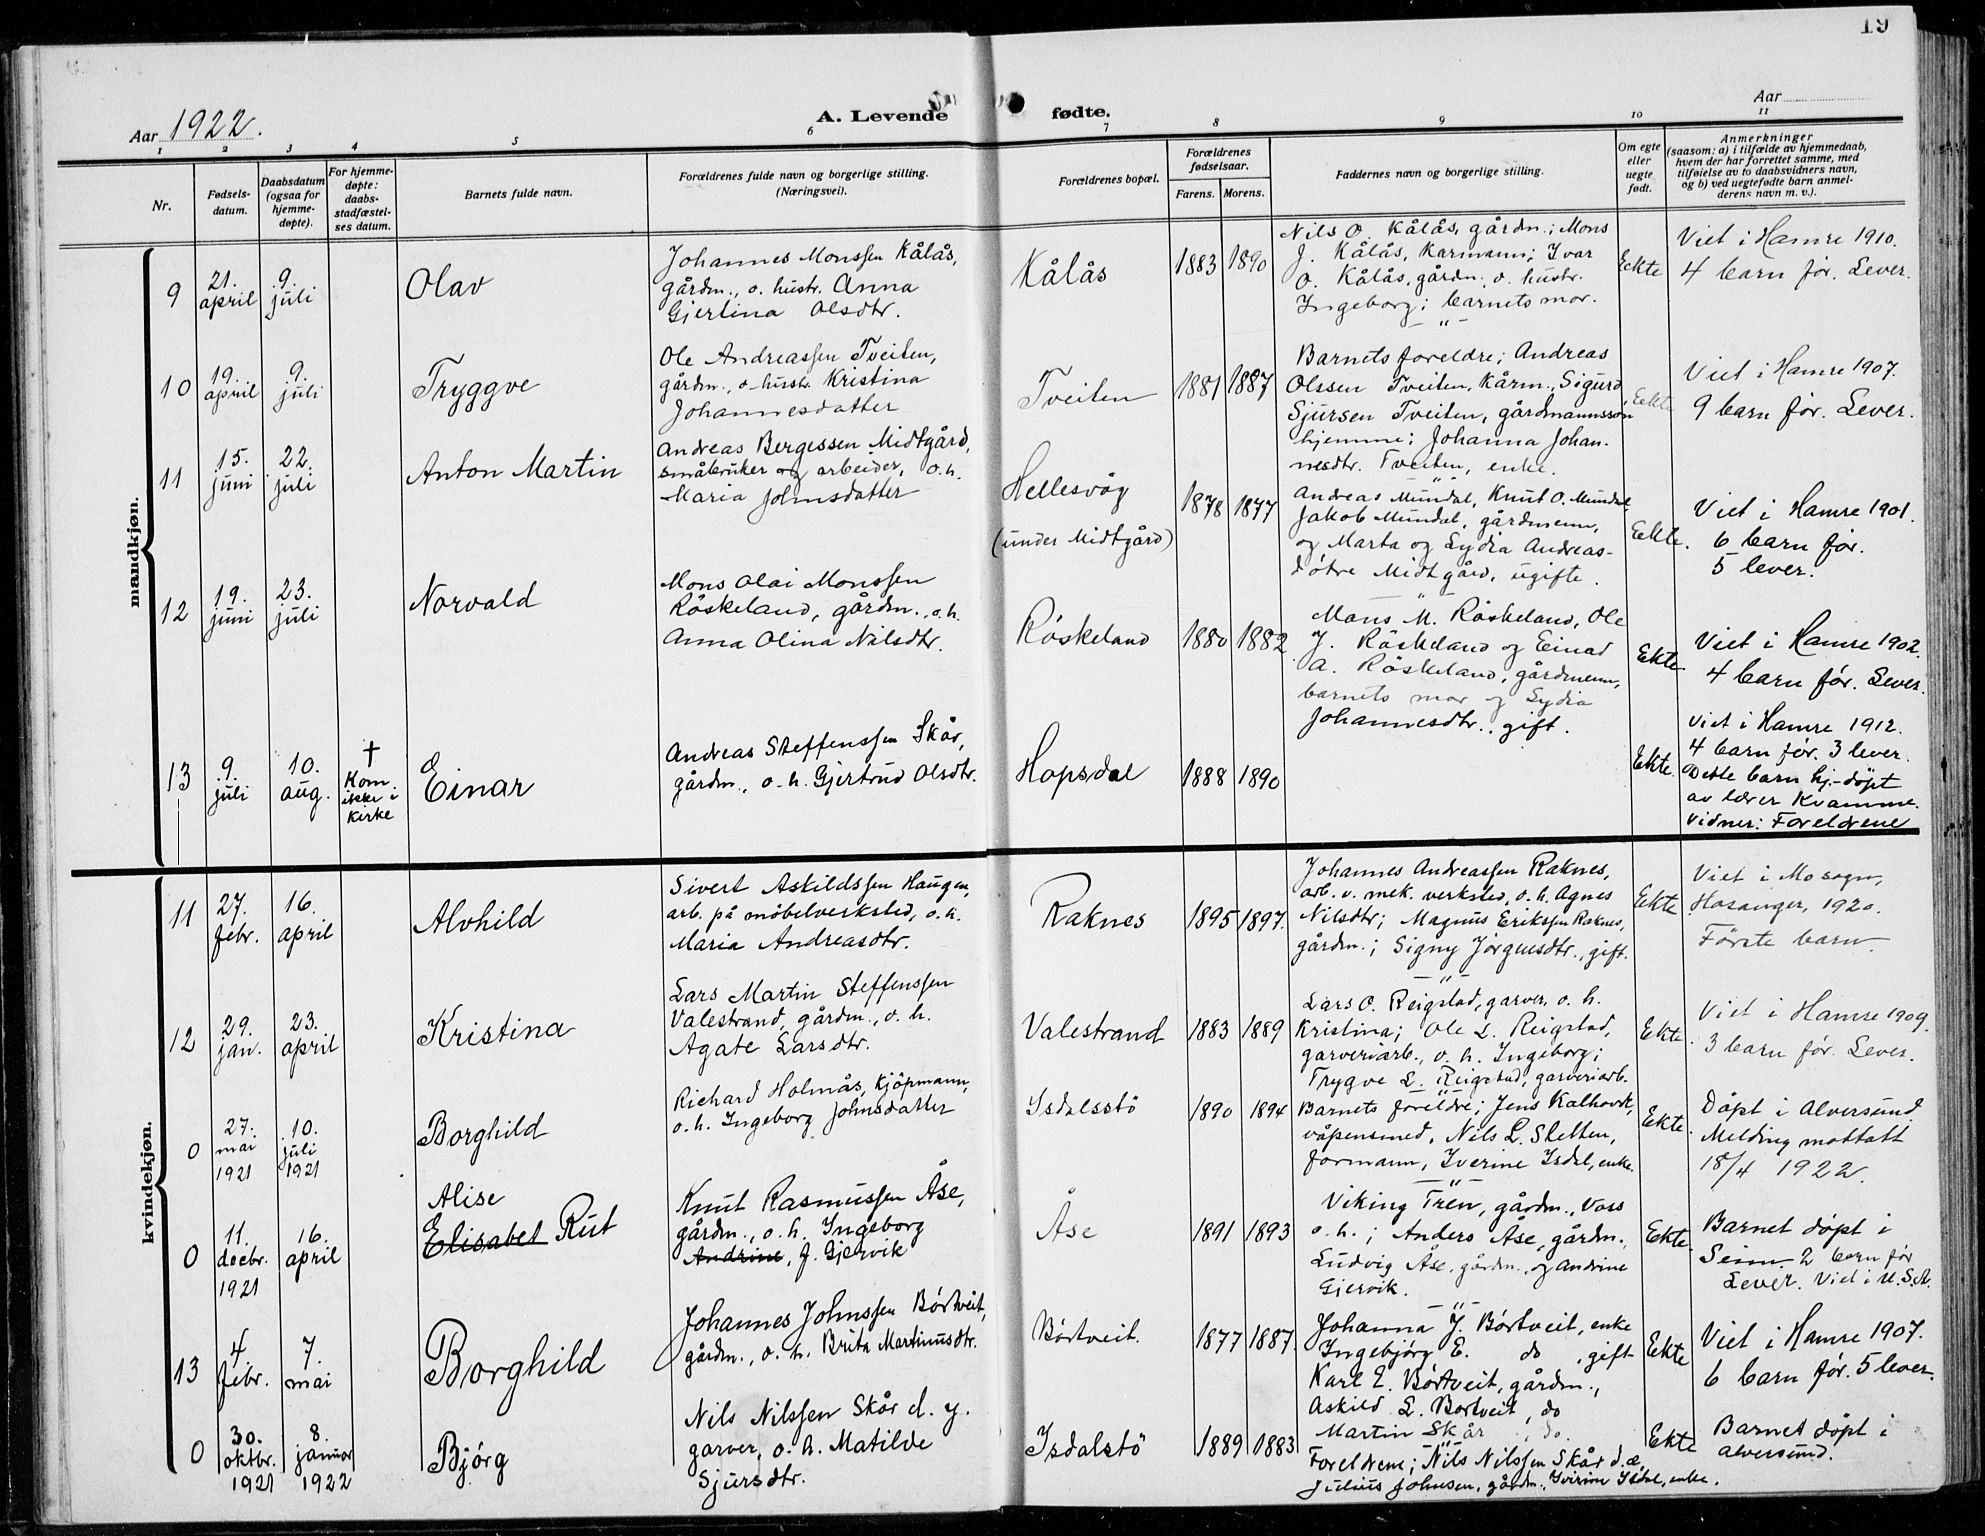 19
Aar 1922.
A. Levende fødte.
Aar
1 2 3 4 5 6 7 8 9 10 11
Nr.
Fødsels-
datum.
Daabsdatum
(ogsaa for
hjemme-
døpte).
For hjemme-
døpte:
daabs-
stadfæstel-
ses datum.
Barnets fulde navn.
Forældrenes fulde navn og borgerlige stilling.
(Næringsvei).
Forældrenes bopæl.
Forældrenes
fødselsaar.
Farens. Morens.
Faddernes navn og borgerlige stilling.
Om egte
eller
uegte
født.
Anmerkninger
(saasom: a) i tilfælde av hjemmedaab,
hvem der har forrettet samme, med
tilføielse av to daabsvidners navn,
og b) ved uegtefødte barn anmel-
derens navn m. v.).
mandkjøn.
9
21.
april
9.
juli
Olav
Johannes Monssen Kålås,
gårdm., o. hustr. Anna
Gjertina Olsdtr.
Kålås
1883 1890
Nils O. Kålås, gårdm.; Mons
J. Kålås, Kårmann; Ivar
O. Kålås, gårdm. o. hustr.
Ingeborg; barnets mor.
Ekte
Viet i Hamre 1910.
4 barn før. Lever.
10
19.
april
9.
juli
Tryggve
Ole Andreassen Tveiten,
gårdm., o. hustr. Kristina
Johannesdatter
Tveiten
1881 1887
Barnets foreldre; Andreas
Olssen Tveiten, Kårm., Sigurd
Sjursen Tveiten, gårdmannsson
hjemme; Johanna Johan-
nesdtr. Tveiten, enke.
Ekte
Viet i Hamre 1907.
9 barn før. Lever.
11
15.
juni
22.
juli
Anton Martin
Andreas Bergessen Midtgård,
småbruker og arbeider, o.h.
Maria Johnsdatter
Hellesvåg
(under Midtgård)
1878 1877
Andreas Mundal, Knut O. Mundal
Jakob Mundal, gårdmenn,
og Marta og Lydia Andreas-
døtre Midtgård, ugifte.
Ekte.
Viet i Hamre 1901.
6 barn før.
5 lever.
12
19.
juni
23.
juli
Norvald
Mons Olai Monssen
Røskeland, gårdm., o.h.
Anna Olina Nilsdtr.
Røskeland
1880 1882
Mons M. Røskeland, Ole
J. Røskeland og Einar
A. Røskeland, gårdmenn,
barnets mor og Lydia
Johannesdtr., gift.
Ekte
Viet i Hamre 1902.
4 barn før. Lever.
13
9.
juli
10.
aug.
†
Kom
ikke i
kirke
Einar
Andreas Steffenssen Skår,
gårdm., o. h. Gjertrud Olsdtr.
Hopsdal
1888 1890
Ekte.
Viet i Hamre 1912.
4 barn før. 3 lever.
Dette barn hj.-døpt
av lærer Kvamme.
Vidner: Foreldrene
kvindekjøn.
11
27.
febr.
16.
april
Alvhild
Sivert Askildssen Haugen,
arb. på møbelverksted, o. h.
Maria Andreasdtr.
Raknes
1895 1897.
Johannes Andreassen Raknes,
arb. v. mek. verksted, o. h. Agnes
Nilsdtr; Magnus Erikssen Raknes,
gårdm.; Signy Jørgensdtr., gift.
Ekte
Viet i Mo sogn,
Hosanger, 1920.
Første barn.
12
29.
jan.
23.
april
Kristina
Lars Martin Steffenssen
Valestrand, gårdm., o. h.
Agate Larsdtr.
Valestrand
1883 1889
Lars O. Reigstad, garver, o. h.
Kristina; Ole L. Reigstad,
garveriarb., o. h. Ingeborg;
Trygve L. Reigstad, garveriarb.
Ekte
Viet i Hamre 1909.
3 barn før. Lever.
0
27.
mai
1921
10.
juli
1921
Borghild
Richard Holmås, kjøpmann,
o. h. Ingeborg Johnsdatter
Isdalsstø
1890 1894
Barnets foreldre; Jens Kalhovd,
våpensmed, Nils L. Sletten,
formann, Iverine Isdal, enke.
Ekte.
Døpt i Alversund
Melding mottatt
18/4 1922.
0
11.
decbr.
1921
16.
april
Alise
Elisabet Rut
Knut Rasmussen Åse,
gårdm., o. h. Ingeborg
Andrine, f. Gjervik
Åse
1891 1893
Viking Træn, gårdm., Voss
o. h.; Anders Åse, gårdm.,
Ludvig Åse, gårdm., og Andrine
Gjervik.
Ekte
Barnet døpt i
Seim 2 barn før
Lever. Viet i U.S.A.
13
4
febr.
7.
mai
Borghild
Johannes Johnssen Børtveit,
gårdm., o. h. Brita Martinusdtr.
Børtveit.
1877 1887.
Johanna J. Børtveit, enke
Ingebjørg E. do , gift
Karl E. Børtveit, gårdm.,
Askild L. Børtveit, do
Martin Skår , do.
Ekte
Viet i Hamre 1907.
6 barn før. 5 lever.
0
30.
oktbr.
1921
8.
januar
1922
Bjørg
Nils Nilssen Skår d. y.
garver, o. h. Matilde
Sjursdtr.
Isdalstø
1889 1883
Foreldrene; Nils Nilssen Skår d.æ,
Julius Johnsen, gårdm., Iverine Isdal, enke.
Ekte
Barnet døpt i
Alversund.